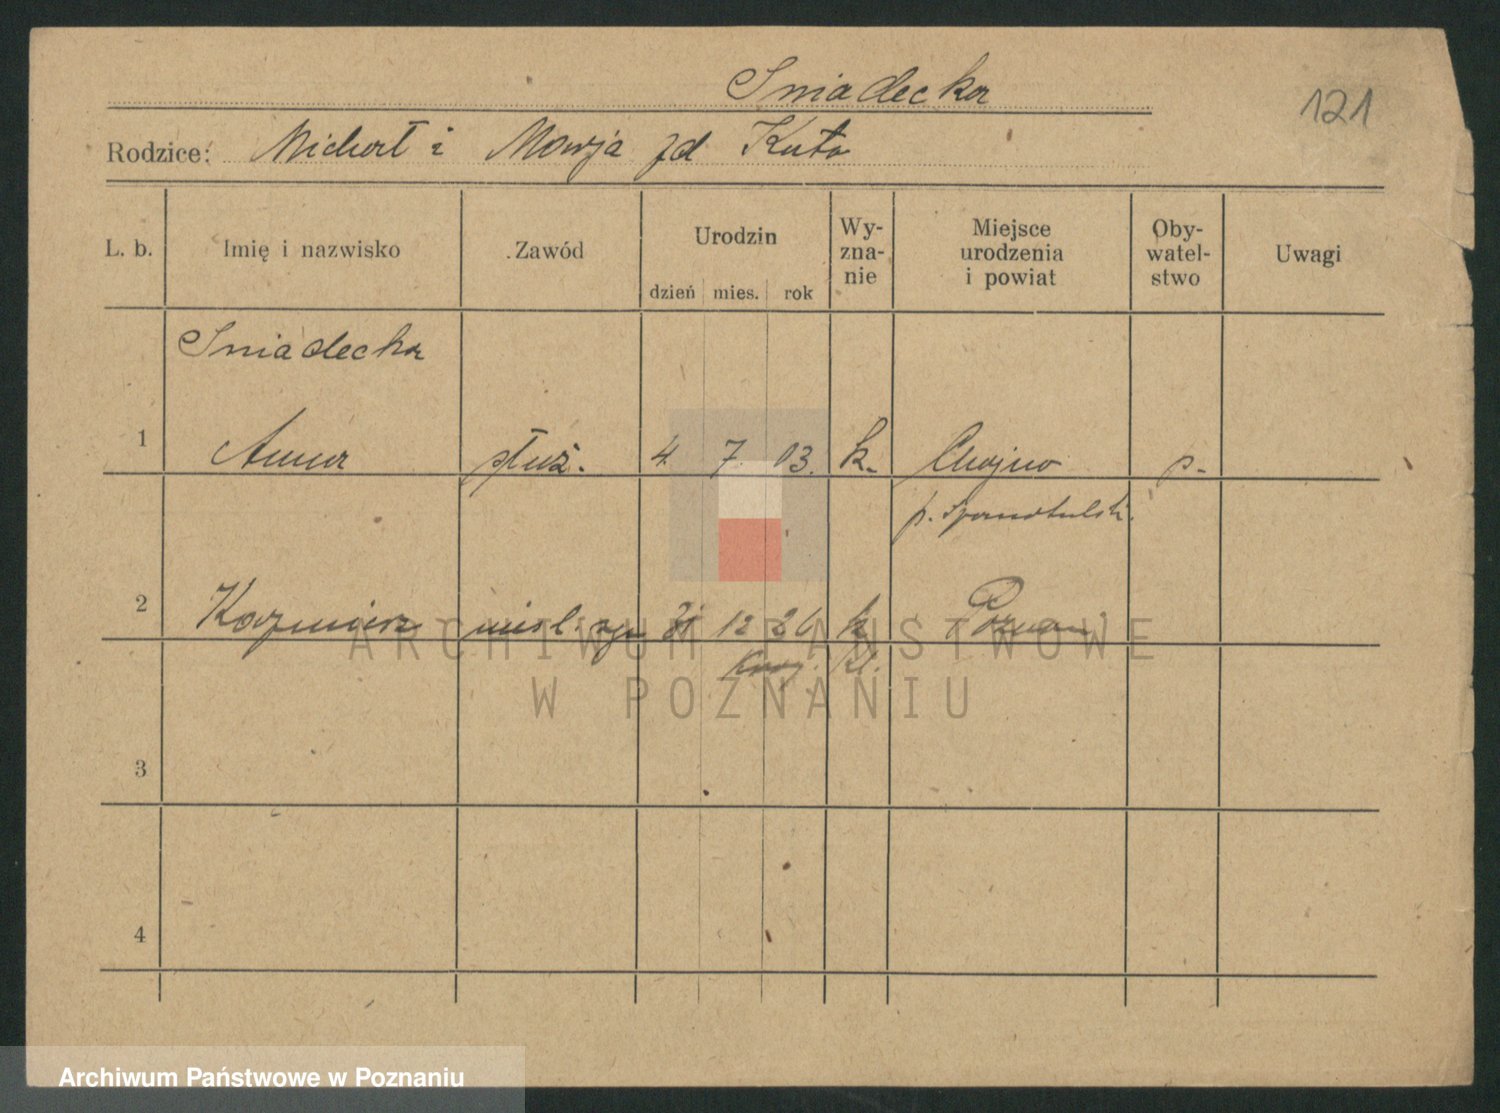 Sniadecka
121
Rodzice: Michał i Marja zd Kuta
L. b. Imię i nazwisko Zawód Urodzin dzień mies. rok Wy-zna-nie Miejsce urodzenia i powiat Oby-watel-stwo Uwagi
Sniadecka
1 Anna służ. 4 7 03. k. Chojno p.
p. Szamotulski.
2 Kazmierz niesl. syn 31 12 26 k Poznan
kl.
3
4
ARCHIWUM PAŃSTWOWE
W POZNANIU
Archiwum Państwowe w Poznaniu